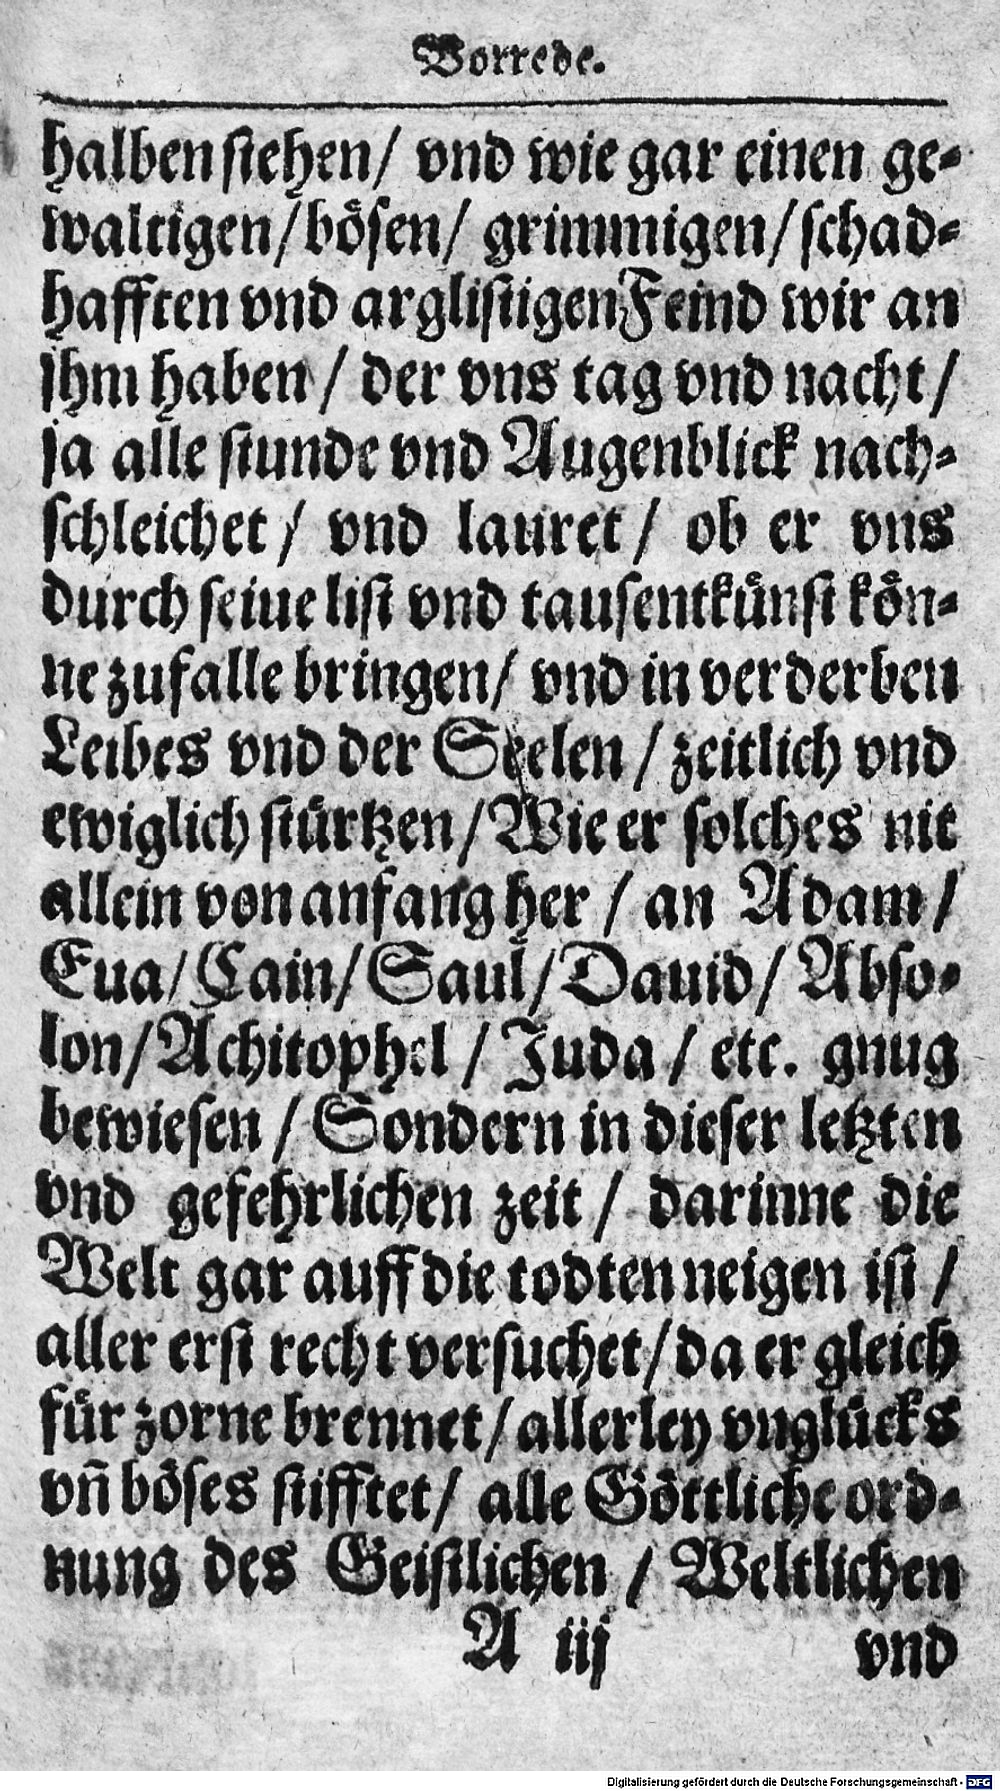 Vorrede.
halben stehen/ vnd wie gar einen ge-
waltigen/bösen/ grimmigen/schad-
hafften vnd arglistigen Feind wir an
jhm haben / der vns tag vnd nacht/
ja alle stunde vnd Augenblick nach-
schleichet/ vnd lauret/ ob er vns
durch seine list vnd tausentkünst kön-
ne zu falle bringen/ vnd in verderben
Leibes vnd der Seelen / zeitlich vnd
ewiglich stürtzen/Wie er solches nit
allein von anfang her / an Adam/
Eua/ Cain/ Saul/ Dauid/ Abso-
lon/ Achitophel / Juda / etc. gnug
bewiesen / Sondern in dieser letzten
vnd gefehrlichen zeit/ darinne die
Welt gar auff die todten neigen ist /
aller erst recht versuchet/da er gleich
für zorne brennet/allerley vnglücks
vñ böses stifftet/ alle Göttliche ord-
nung des Geistlichen / Weltlichen
A iij vnd
Digitalisierung gefördert durch die Deutsche Forschungsgemeinschaft - DFG